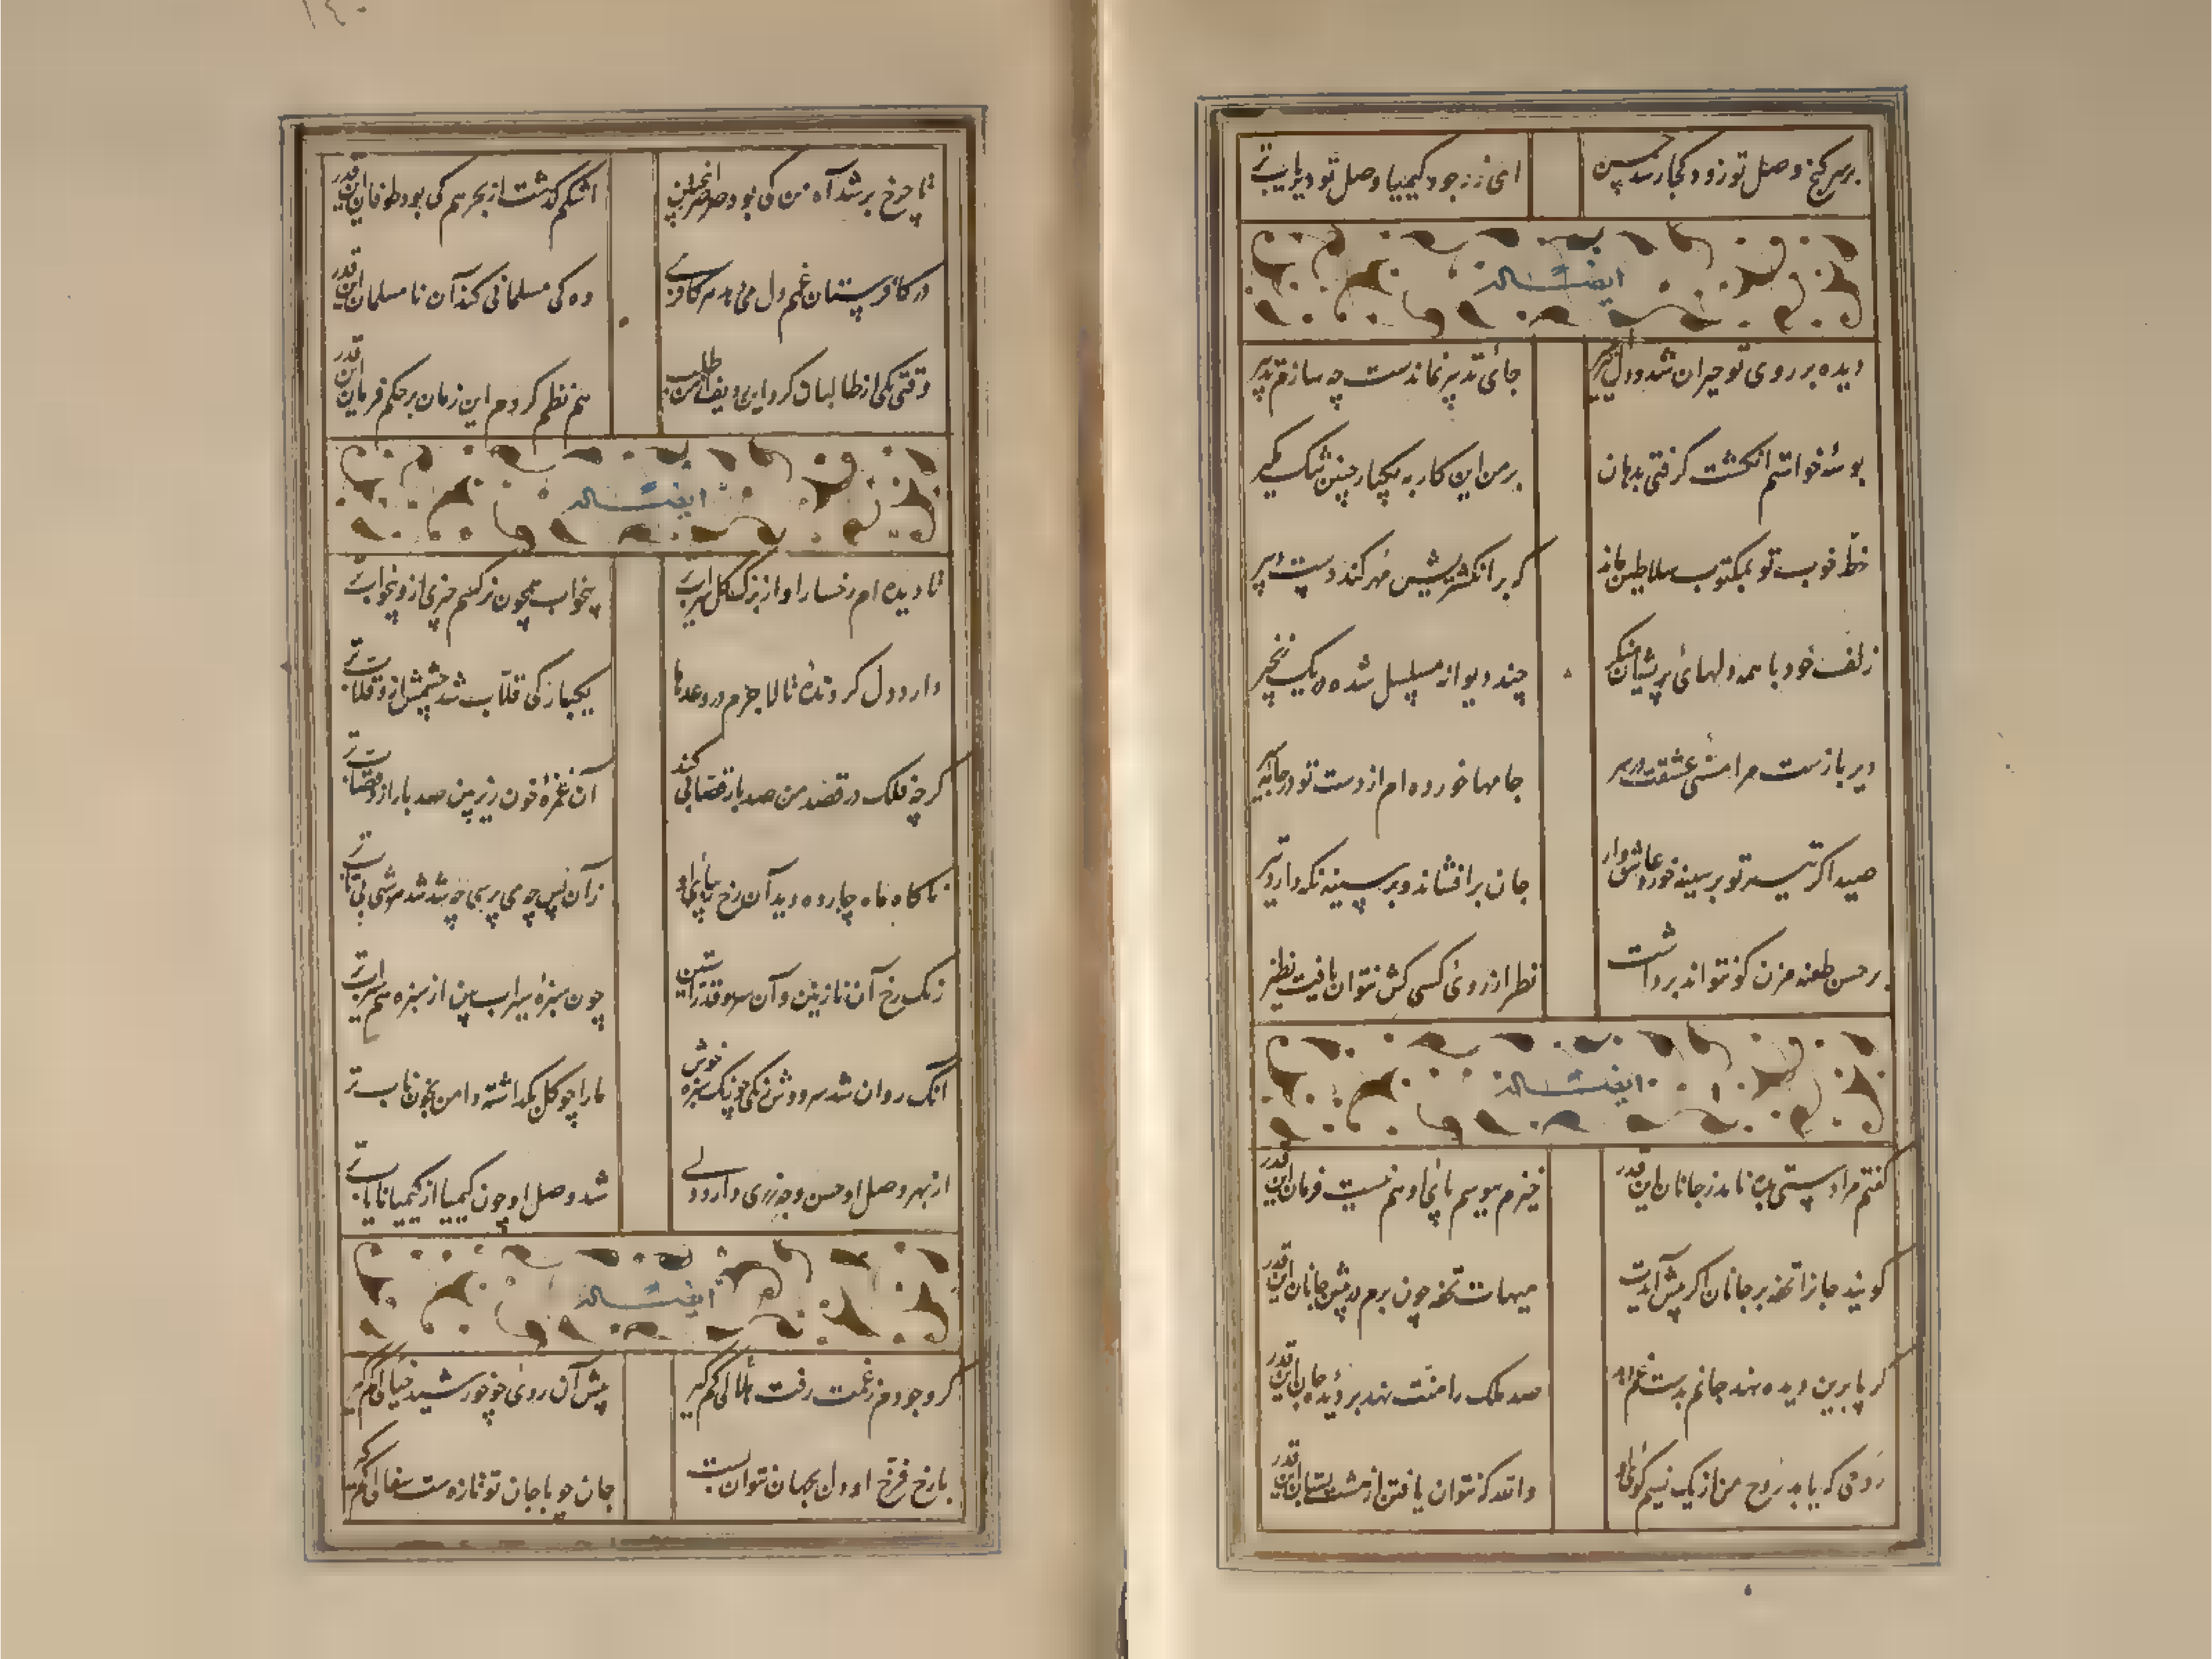 بر سر گنج وصل تو زود کجا رسد حسن
ای ز وجود کیمیا وصل تو دیریاب تر
ایضا له
دیده بر روی تو حیران شد و دل
جای تدبیر نماندست چه سازم تدبیر
بوسه خواستم انگشت گرفتی بدهان
بر من این کار به یکبار چنین تنگ مگیر
خط خوب تو بمکتوب سلاطین ماند
که بر انگشترینش مهر کند دست دبیر
زلف خود با همه دلهای پریشان بنگر
چند دیوانه مسلسل شده در یک زنجیر
دیر بازست مرا مستی عشقت در سر
جامها خورده ام از دست تو
صید اگر تیر تو بر سینه خورد عاشق وار
جان برافشاند و بر سینه نگه دارد تیر
بر حسن طعنه مزن کو نتواند برداشت
نظر از روی کسی کش نتوان یافت نظیر
ایضا له
گفتم مرا دستی بده نامد ز جانان این قدر
خیزم ببوسم پای او هم نیست فرمان این قدر
گویند جان را تحفه بر جانان اگر پیش آیدت
هیهات تحفه چون برم در پیش جانان این قدر
گر پا برین دیده نهد جانم بدست
صد ملک را منت نهد بر دیده جان این قدر
روحی که یابد روح من از یک نسیم کوی او
والله که نتوان یافتن از هشت بستان این قدر
۱۴۰
تا چرخ بر شد آه من کی بود صرصر این چنین
اشکم گذشت از بحر هم کی بود طوفان این قدر
در کافرستان غمم دل می برد کافری
وه کی مسلمانی کند آن نا مسلمان این قدر
وقتی یکی از طالبان کرد این ردیف از من طلب
هم نظم کردم این زمان بر حکم فرمان این قدر
ایضا له
تا دیده ام رخسار او از برگ گل سیراب تر
بیخواب همچون نرگسم چیزی ازو بیخواب تر
دارد دل گردنده تا لاجرم در وعدها
یکباره کی قلاب شد چشمش ازو قلاب تر
گرچه فلک در قصد من صد بار قصابی کند
آن غمزه خون ریز بین صد بار ازو قصاب تر
ناگاه ماه چارده دید آن رخ
زان پس چو می پرسی چه شد شد هر شبی بی تاب تر
زنگ رخ آن نازنین و آن سرو قدر
چون سبزه سیراب بین از سبزه هم سیراب تر
آنک روان شد سرو وش رنگی چو رنگ سبزه خوش
ما را چو گل بگذاشته دامن بخون ناب تر
از بهر وصل او حسن وجه زری دارد ولی
شد وصل او چون کیمیا از کیمیا نایاب تر
ایضا له
گر وجودم ز غمت رفت خیالی کم گیر
پیش آن روی چو خورشید خیالی کم گیر
با رخ فرخ او دل بجهان نتوان بست
جان چو با جان تو تازه ست سفالی کم گیر